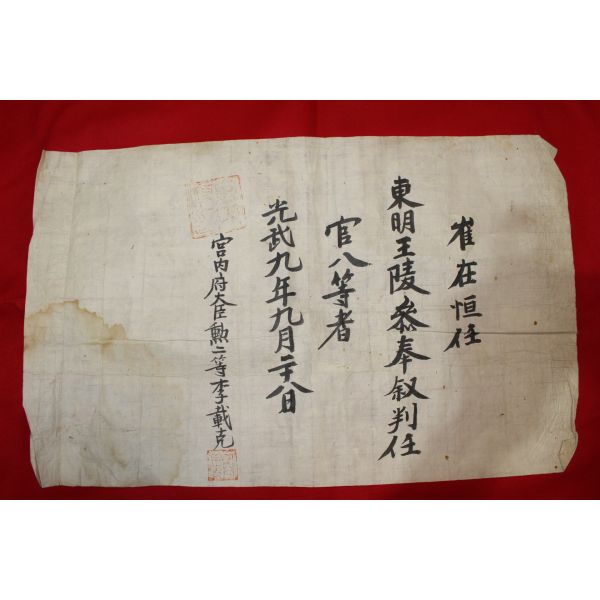 崔在恒任
東明王陵叅奉叙判任
官八等者
光武九年九月二十八日
宮内府大臣勲二等李載克